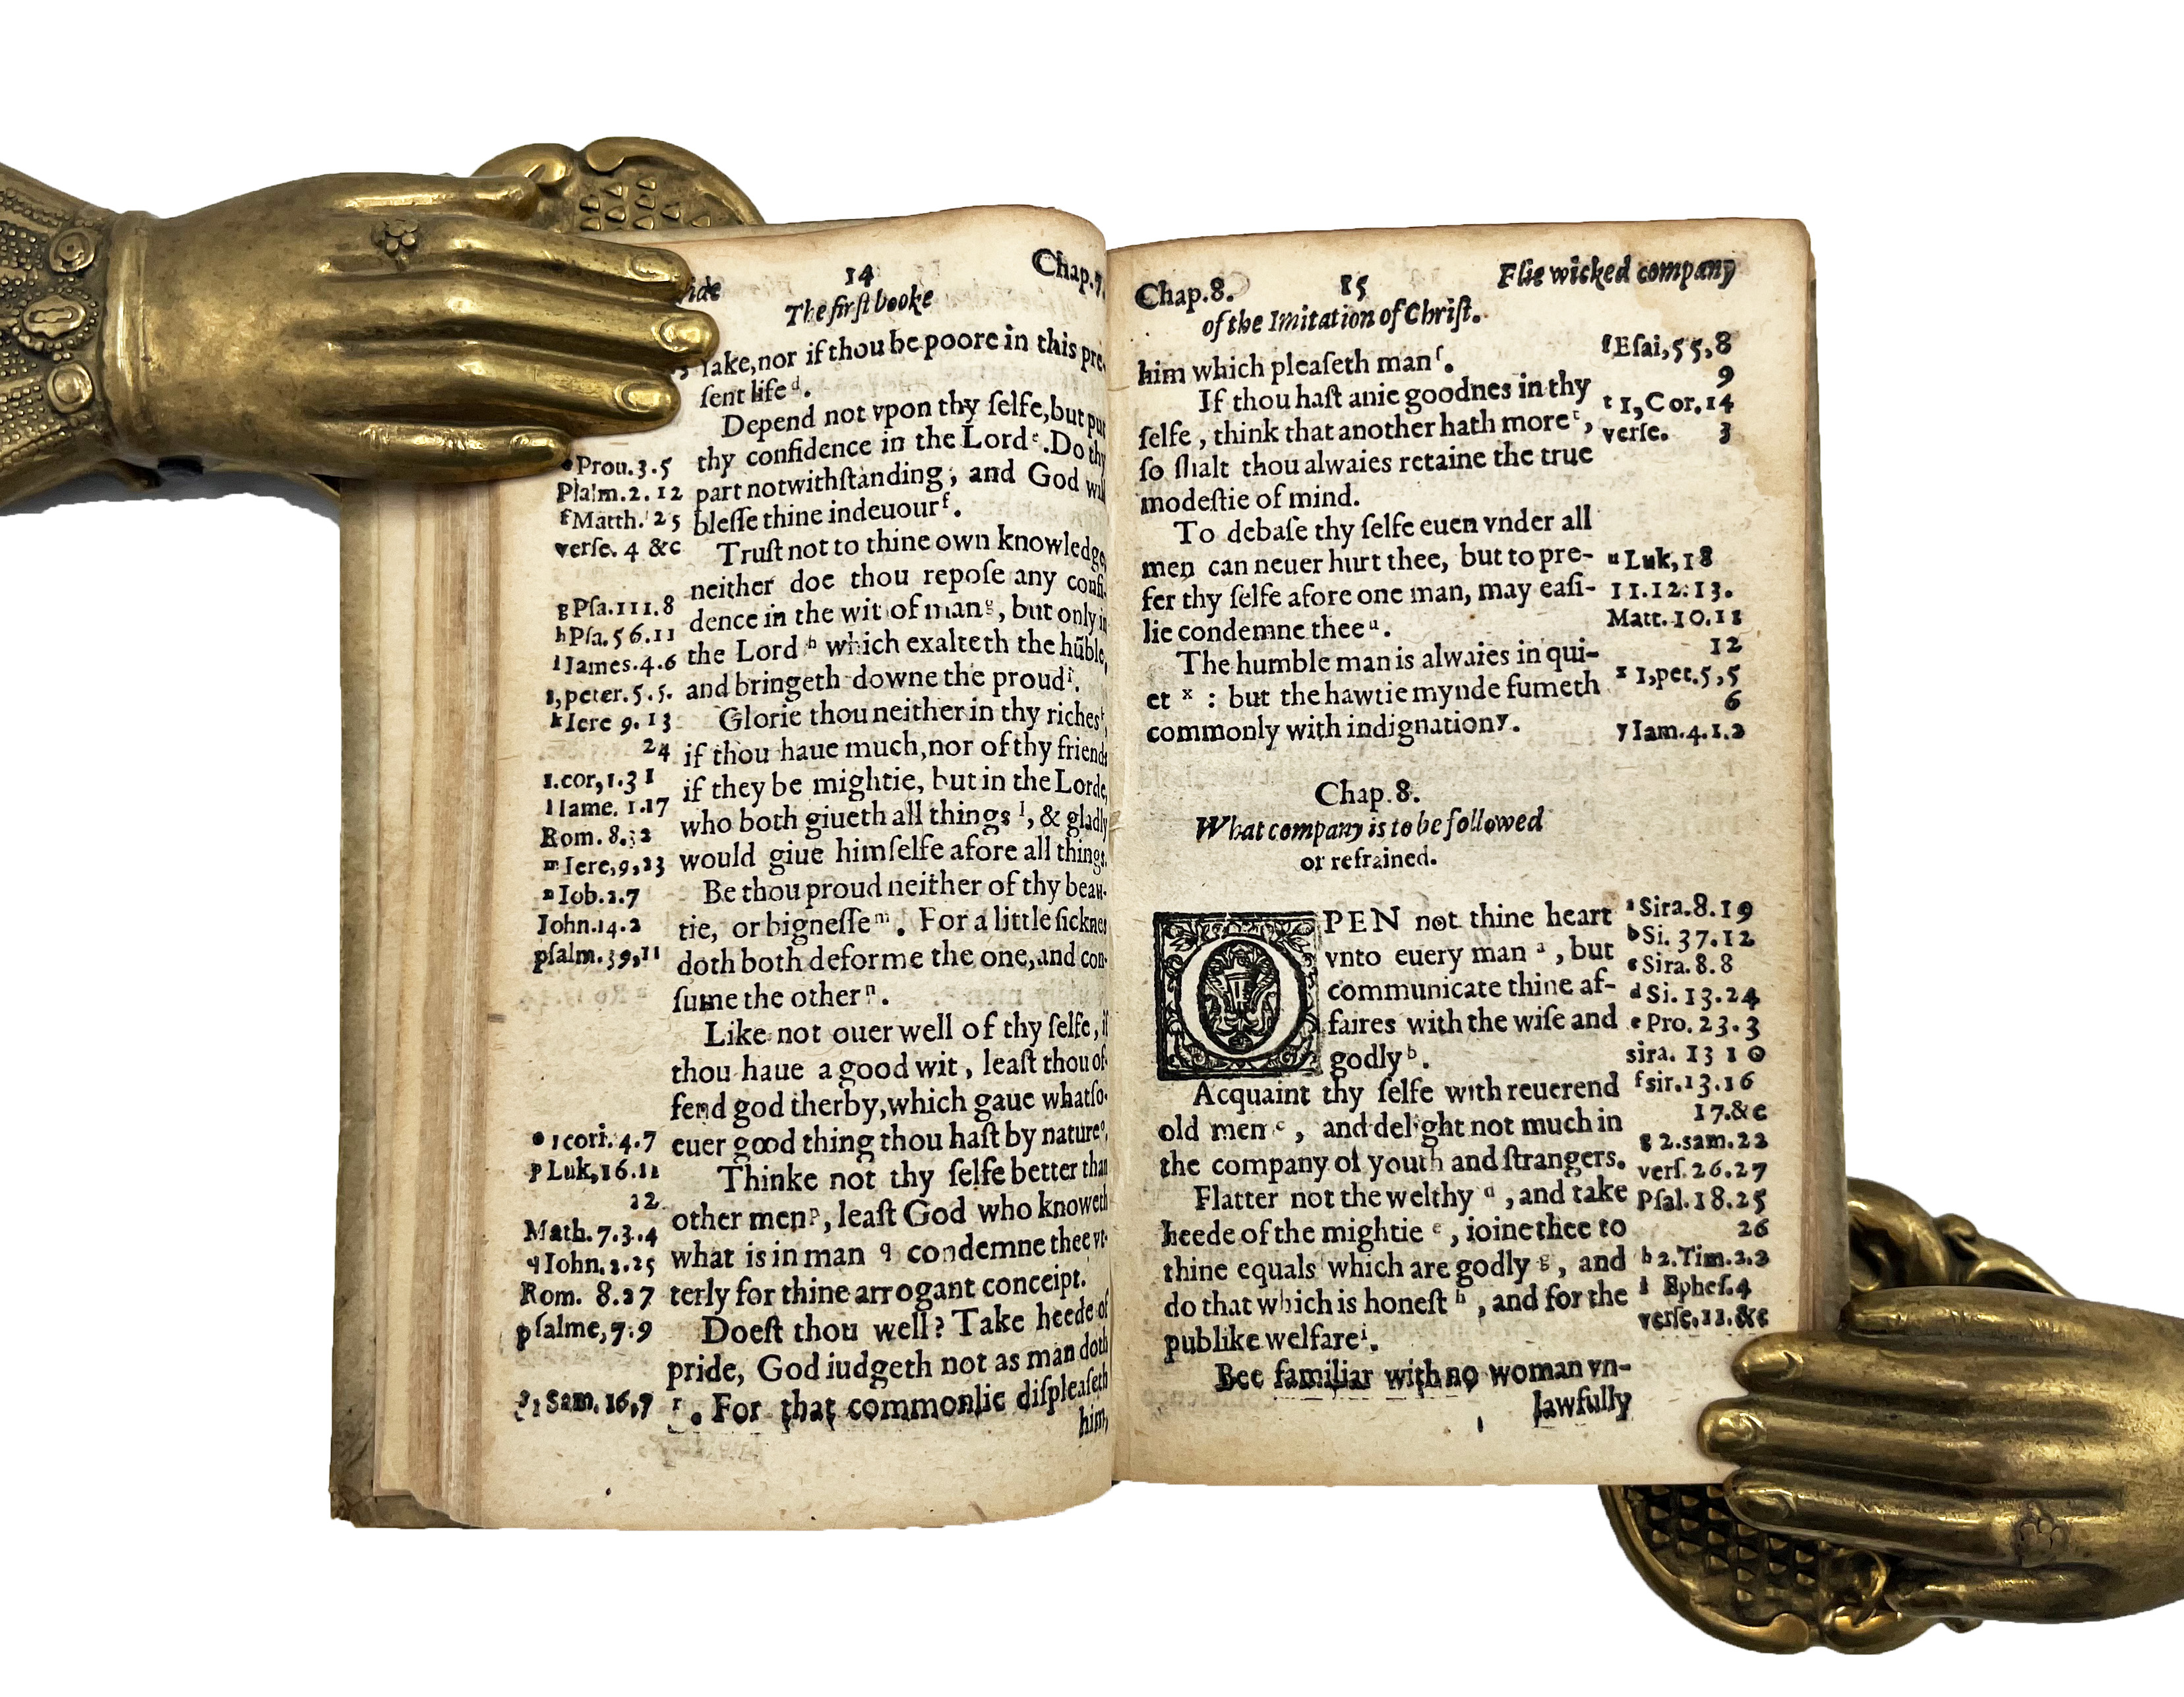 14
Chap.7.
The firſt booke
ſake,nor if thou be poore in this pre-
ſent life d.
Depend not vpon thy ſelfe,but put
thy confidence in the Lord e.Do thy
part notwithſtanding, and God will
bleſſe thine indeuour f.
Truſt not to thine own knowledge,
neither doe thou repoſe any confi-
dence in the wit of man g, but only in
the Lord h which exalteth the hūble,
and bringeth downe the proud i.
Glorie thou neither in thy riches k,
if thou haue much,nor of thy friends
if they be mightie, but in the Lorde,
who both giueth all things l, & gladly
would giue himſelfe afore all things.
Be thou proud neither of thy beau-
tie, or bigneſſe m. For a little ſicknes
doth both deforme the one,and con-
ſume the other n.
Like not ouer well of thy ſelfe, if
thou haue a good wit, leaſt thou of-
fend god therby,which gaue whatſo-
euer good thing thou haſt by nature o.
Thinke not thy ſelfe better than
other men p, leaſt God who knoweth
what is in man q condemne thee vt-
terly for thine arrogant conceipt.
Doeſt thou well? Take heede of
pride, God iudgeth not as man doth
r. For that commonlie diſpleaſeth
him,
Prou.3.5
Pſalm.2.12
f Matth. 25
verſe. 4 &c
g Pſa.111.8
h Pſa.56.11
i Iames.4.6
1,peter.5.5.
k Iere 9.13
24
1.cor,1.31
l Iame. 1.17
Rom. 8.32
m Iere,9,23
n Iob.2.7
Iohn.14.2
pſalm.39,11
o 1cori.4.7
p Luk,16.11
12
Math.7.3.4
q Iohn.2.25
Rom. 8.27
pſalme,7.9
1 Sam. 16,7
Chap.8.
15
Flie wicked company
of the Imitation of Chriſt.
him which pleaſeth man ſ.
If thou haſt anie goodnes in thy
ſelfe, think that another hath more t,
ſo ſhalt thou alwaies retaine the true
modeſtie of mind.
To debaſe thy ſelfe euen vnder all
men can neuer hurt thee, but to pre-
fer thy ſelfe afore one man, may eaſi-
lie condemne thee u.
The humble man is alwaies in qui-
et x : but the hawtie mynde fumeth
commonly with indignation y.
ſ Eſai,55,8
9
t 1,Cor.14
verſe. 3
u Luk,18
11.12:13.
Matt.10.11
12
x 1,pet.5,5
6
y Iam.4.1.2
Chap.8.
What company is to be followed
or refrained.
OPEN not thine heart
vnto euery man a, but
communicate thine af-
faires with the wiſe and
godly b.
Acquaint thy ſelfe with reuerend
old men c, and delight not much in
the company of youth and ſtrangers.
Flatter not the welthy d, and take
heede of the mightie e, ioine thee to
thine equals which are godly g, and
do that which is honeſt h, and for the
publike welfare i.
Bee familiar with no woman vn-
lawfully
a Sira.8.19
b Si. 37.12
c Sira.8.8
d Si. 13.24
e Pro.23.3
sira. 13 10
f sir.13.16
17.&c
g 2.sam.22
verſ.26.27
Pſal.18.25
26
h 2.Tim.2.2
i Epheſ.4
verſe.11.&c